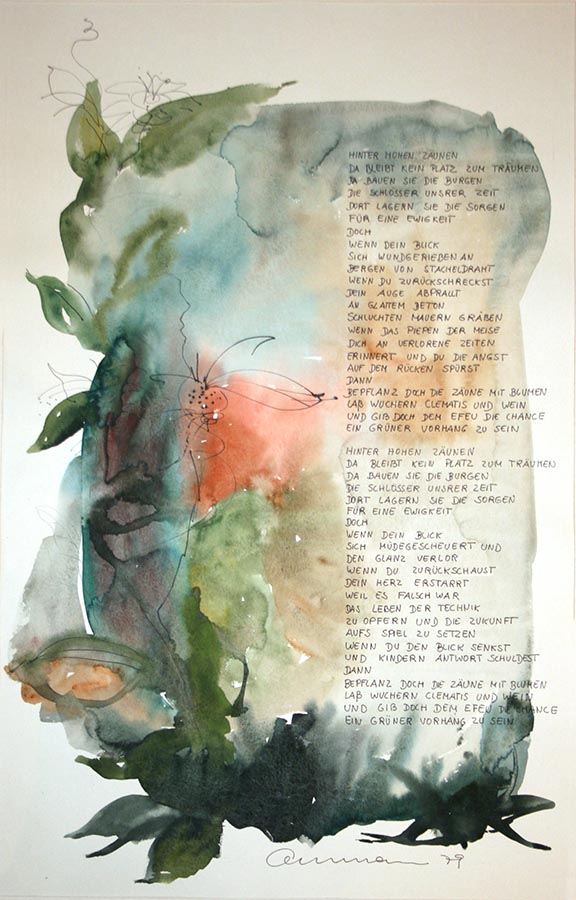 HINTER HOHEN ZÄUNEN
DA BLEIBT KEIN PLATZ ZUM TRÄUMEN
DA BAUEN SIE DIE BURGEN
DIE SCHLÖSSER UNSRER ZEIT
DORT LAGERN SIE DIE SORGEN
FÜR EINE EWIGKEIT
DOCH
WENN DEIN BLICK
SICH WUNDGERIEBEN AN
BERGEN VON STACHELDRAHT
WENN DU ZURÜCKSCHRECKST
DEIN AUGE ABPRALLT
AN GLATTEM BETON
SCHLUCHTEN MAUERN GRÄBEN
WENN DAS PIEPEN DER MEISE
DICH AN VERLORENE ZEITEN
ERINNERT UND DU DIE ANGST
AUF DEM RÜCKEN SPÜRST
DANN
BEPFLANZ DOCH DIE ZÄUNE MIT BLUMEN
LAß WUCHERN CLEMATIS UND WEIN
UND GIB DOCH DEM EFEU DIE CHANCE
EIN GRÜNER VORHANG ZU SEIN
HINTER HOHEN ZÄUNEN
DA BLEIBT KEIN PLATZ ZUM TRÄUMEN
DA BAUEN SIE DIE BURGEN
DIE SCHLÖSSER UNSRER ZEIT
DORT LAGERN SIE DIE SORGEN
FÜR EINE EWIGKEIT
DOCH
WENN DEIN BLICK
SICH MÜDEGESCHEUERT UND
DEN GLANZ VERLOR
WENN DU ZURÜCKSCHAUST
DEIN HERZ ERSTARRT
WEIL ES FALSCH WAR
DAS LEBEN DER TECHNIK
ZU OPFERN UND DIE ZUKUNFT
AUFS SPIEL ZU SETZEN
WENN DU DEN BLICK SENKST
UND KINDERN ANTWORT SCHULDEST
DANN
BEPFLANZ DOCH DIE ZÄUNE MIT BLUMEN
LAß WUCHERN CLEMATIS UND WEIN
UND GIB DOCH DEM EFEU DIE CHANCE
EIN GRÜNER VORHANG ZU SEIN
79